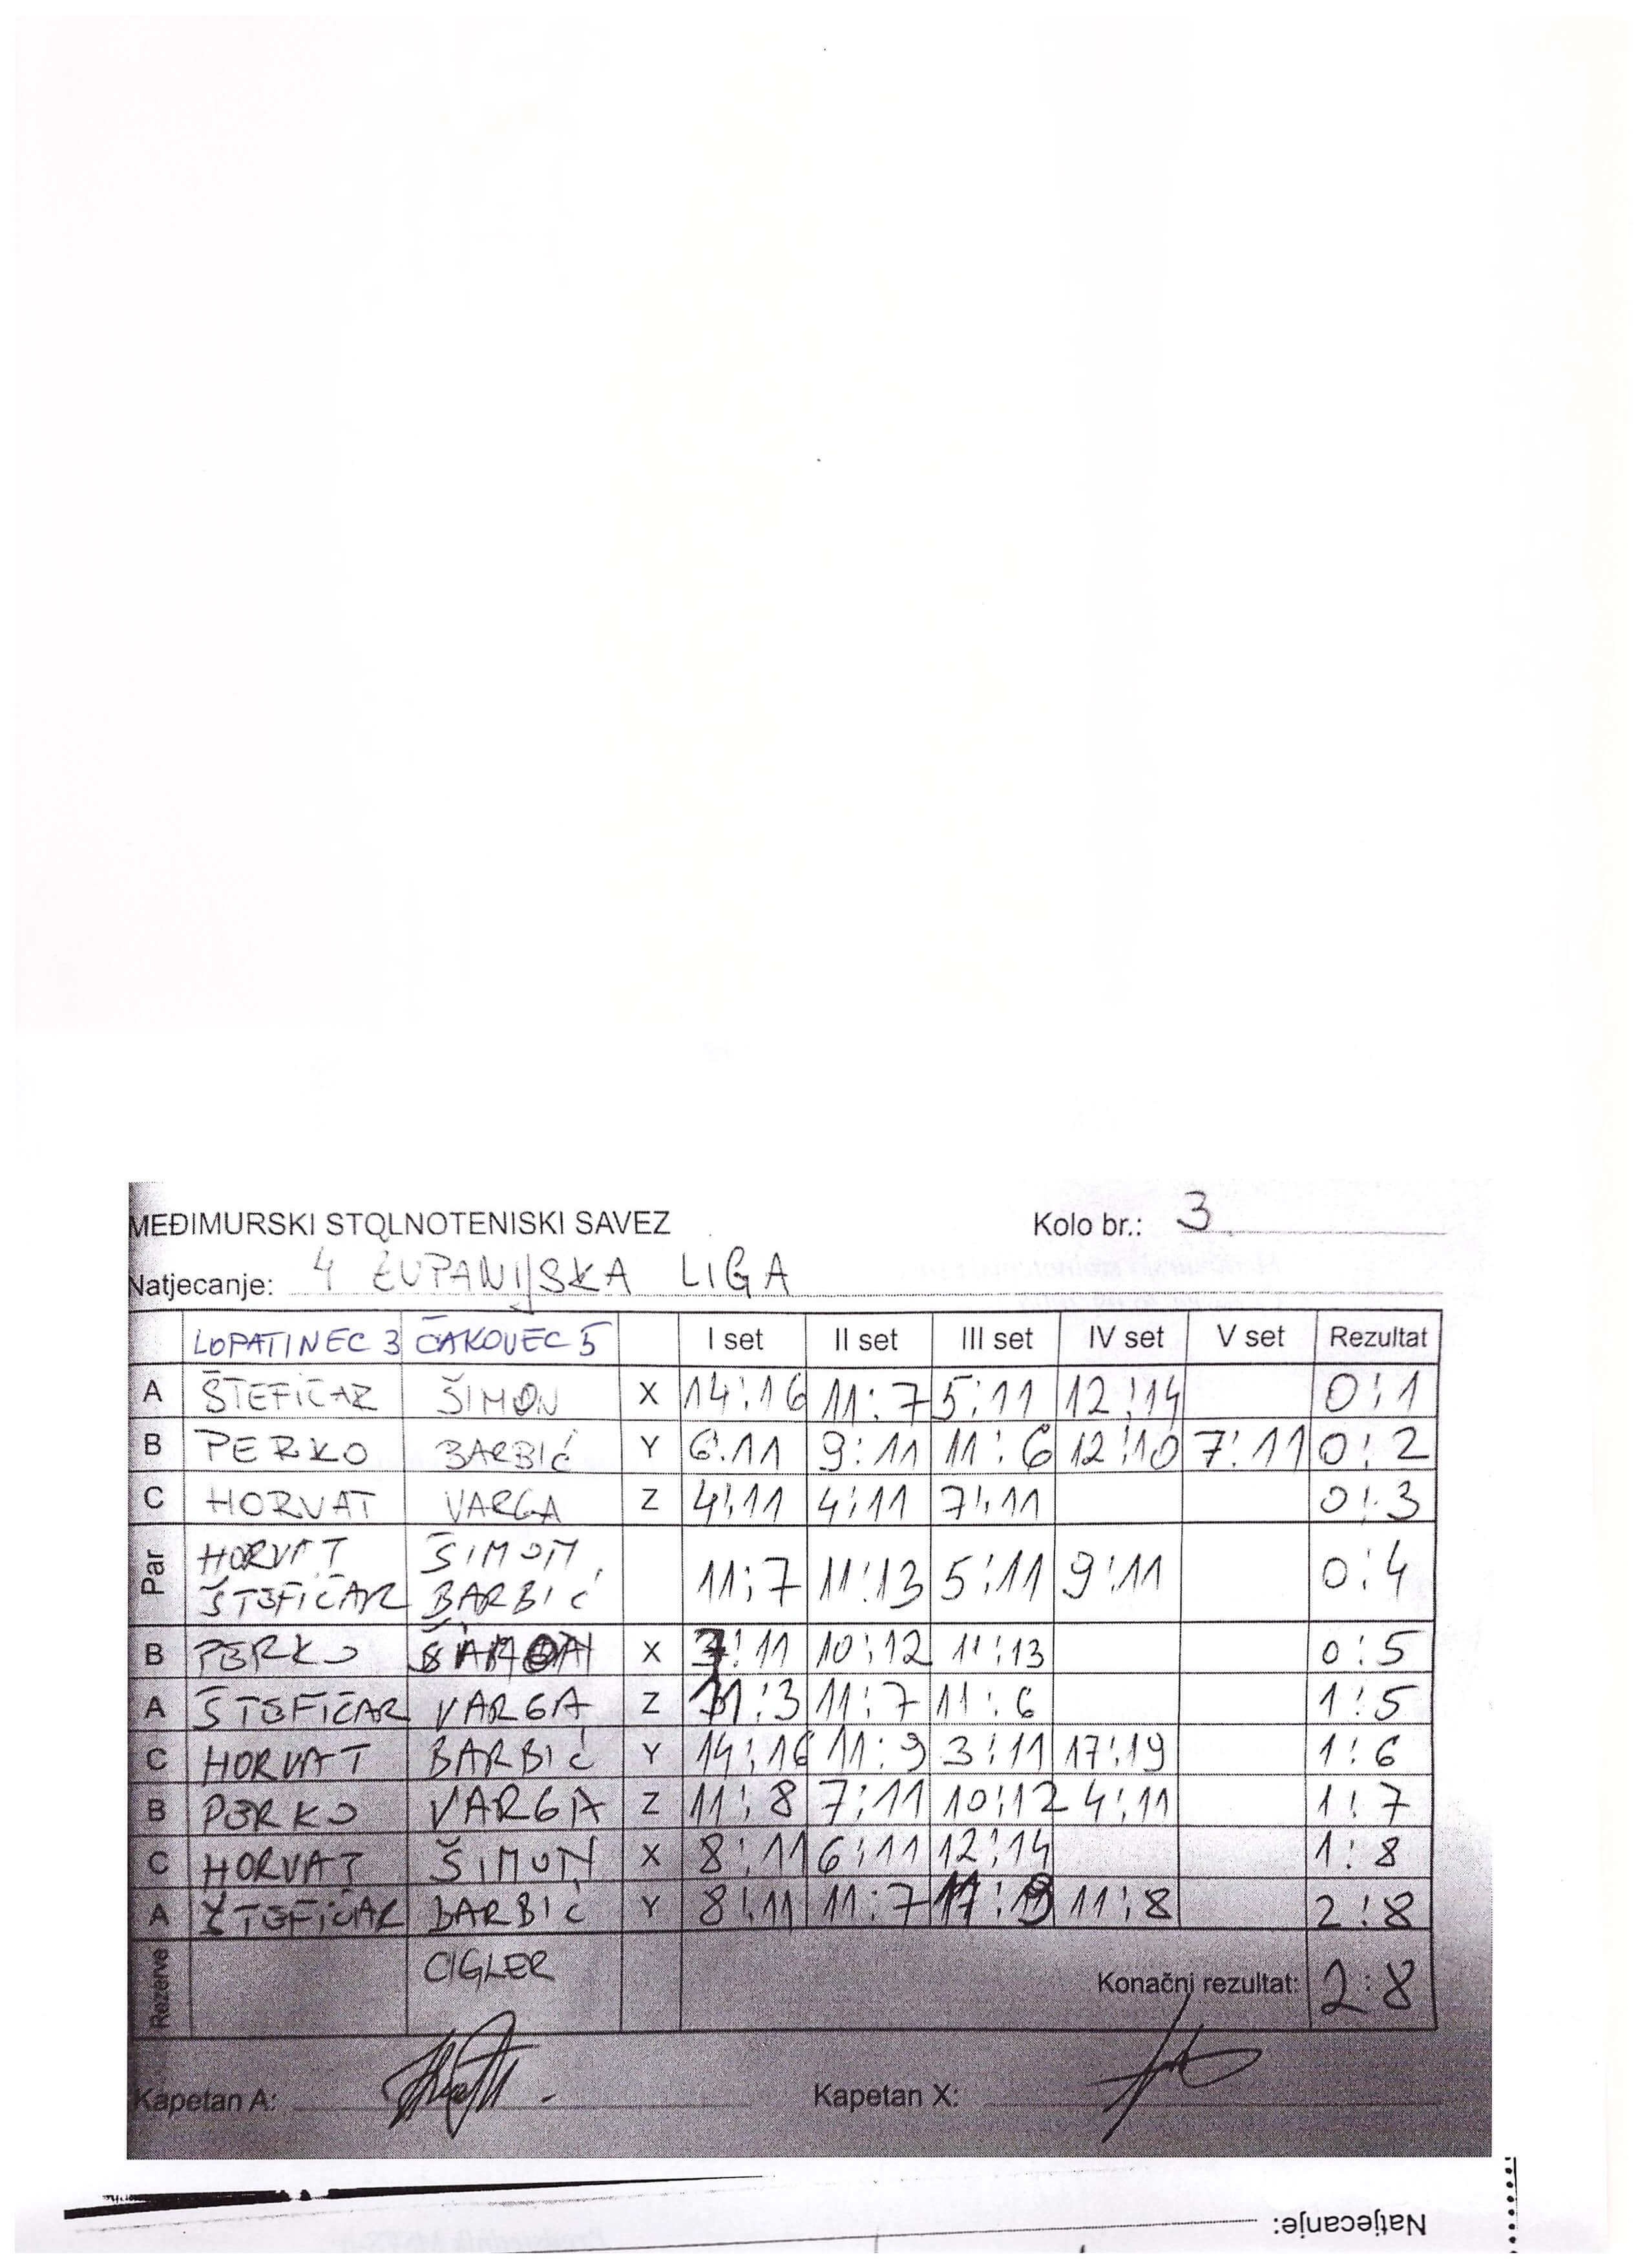 MEĐIMURSKI STOLNOTENISKI SAVEZ Kolo br.: 3
Natjecanje: 4 ŽUPANIJSKA LIGA
LOPATINEC 3 ČAKOVEC 5 I set II set III set IV set V set Rezultat
A ŠTEFIČAR ŠIMON X 14:16 11:7 5:11 12:14 0:1
B PERKO BARBIĆ Y 6:11 9:11 11:6 12:10 7:11 0:2
C HORVAT VARGA Z 4:11 4:11 7:11 0:3
Par HORVAT ŠTEFIČAR ŠIMON, BARBIĆ 11:7 11:13 5:11 9:11 0:4
B PERKO ŠIMON X 7:11 10:12 11:13 0:5
A ŠTEFIČAR VARGA Z 11:3 11:7 11:6 1:5
C HORVAT BARBIĆ Y 14:16 11:9 3:11 17:19 1:6
B PERKO VARGA Z 11:8 7:11 10:12 4:11 1:7
C HORVAT ŠIMON X 8:11 6:11 12:14 1:8
A ŠTEFIČAR BARBIĆ Y 8:11 11:7 11:9 11:8 2:8
Rezerve CIGLER Konačni rezultat: 2:8
Kapetan A: Kapetan X:
Natjecanje: